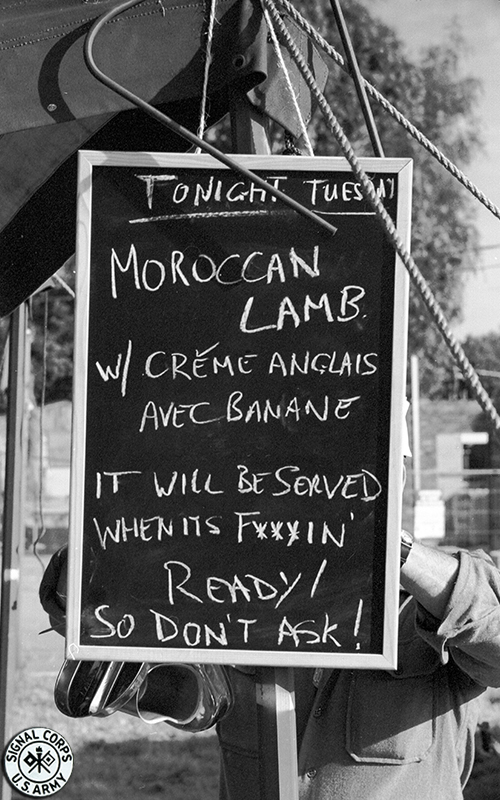 TONIGHT TUESDAY
MOROCCAN
LAMB.
W/ CRÉME ANGLAIS
AVEC BANANE
IT WILL BE SERVED
WHEN ITS F***IN'
READY!
SO DON'T ASK!
SIGNAL CORPS
U.S. ARMY